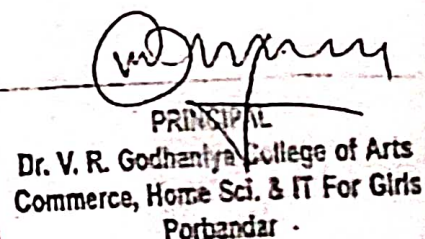 PRINCIPAL
Dr. V. R. Godhaniya College of Arts
Commerce, Home Sci. & IT For Girls
Porbandar.